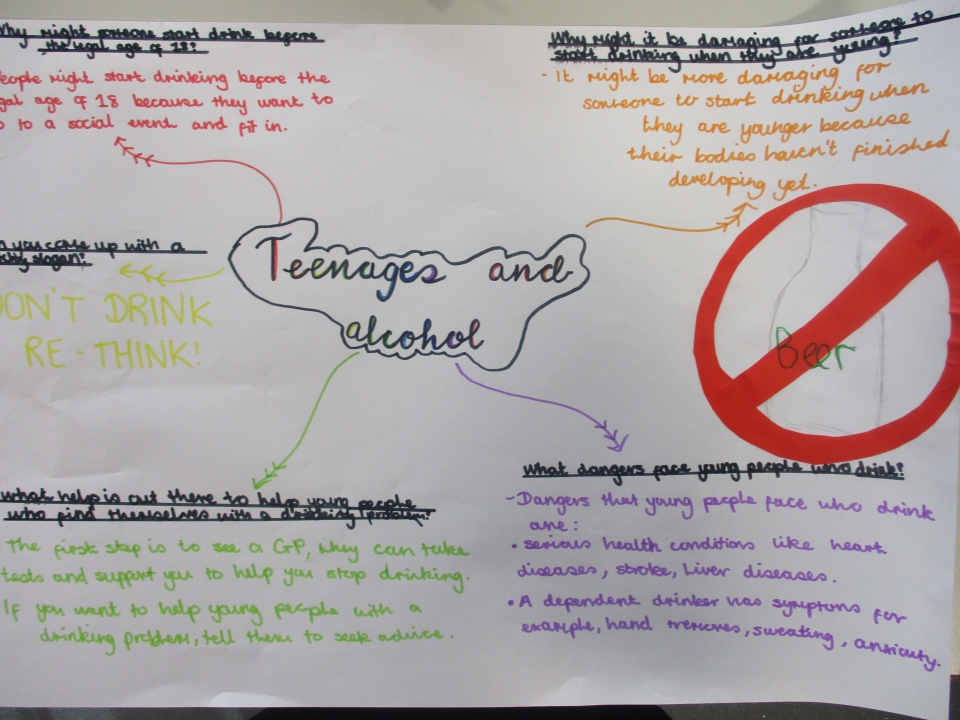 Why might someone start drink before
the legal age of 18?
eople might start drinkeing before the
gal age of 18 because they want to
o to a social event and fit in.
Why might it be damaging for someone to
start drinking when they are young?
- It might be more damaging for
someone to start drinking when
they are younger because
their bodies haven't finished
developing yet.
n you come up with a
slogan?
ON'T DRINK
RE-THINK!
Teenages and
alcohol
Beer
what help is out there to help young people
who find themselves with a drinking problem?
The first step is to see a GP, they can take
tests and support you to help you stop drinking.
If you want to help young people with a
drinking problem, tell them to seek advice.
What dangers face young people who drink?
- Dangers that young people face who drink
are:
• serious health conditions like heart
diseases, stroke, Liver diseases.
• A dependent drinker has symptoms for
example, hand tremores, sweating, anxiety.